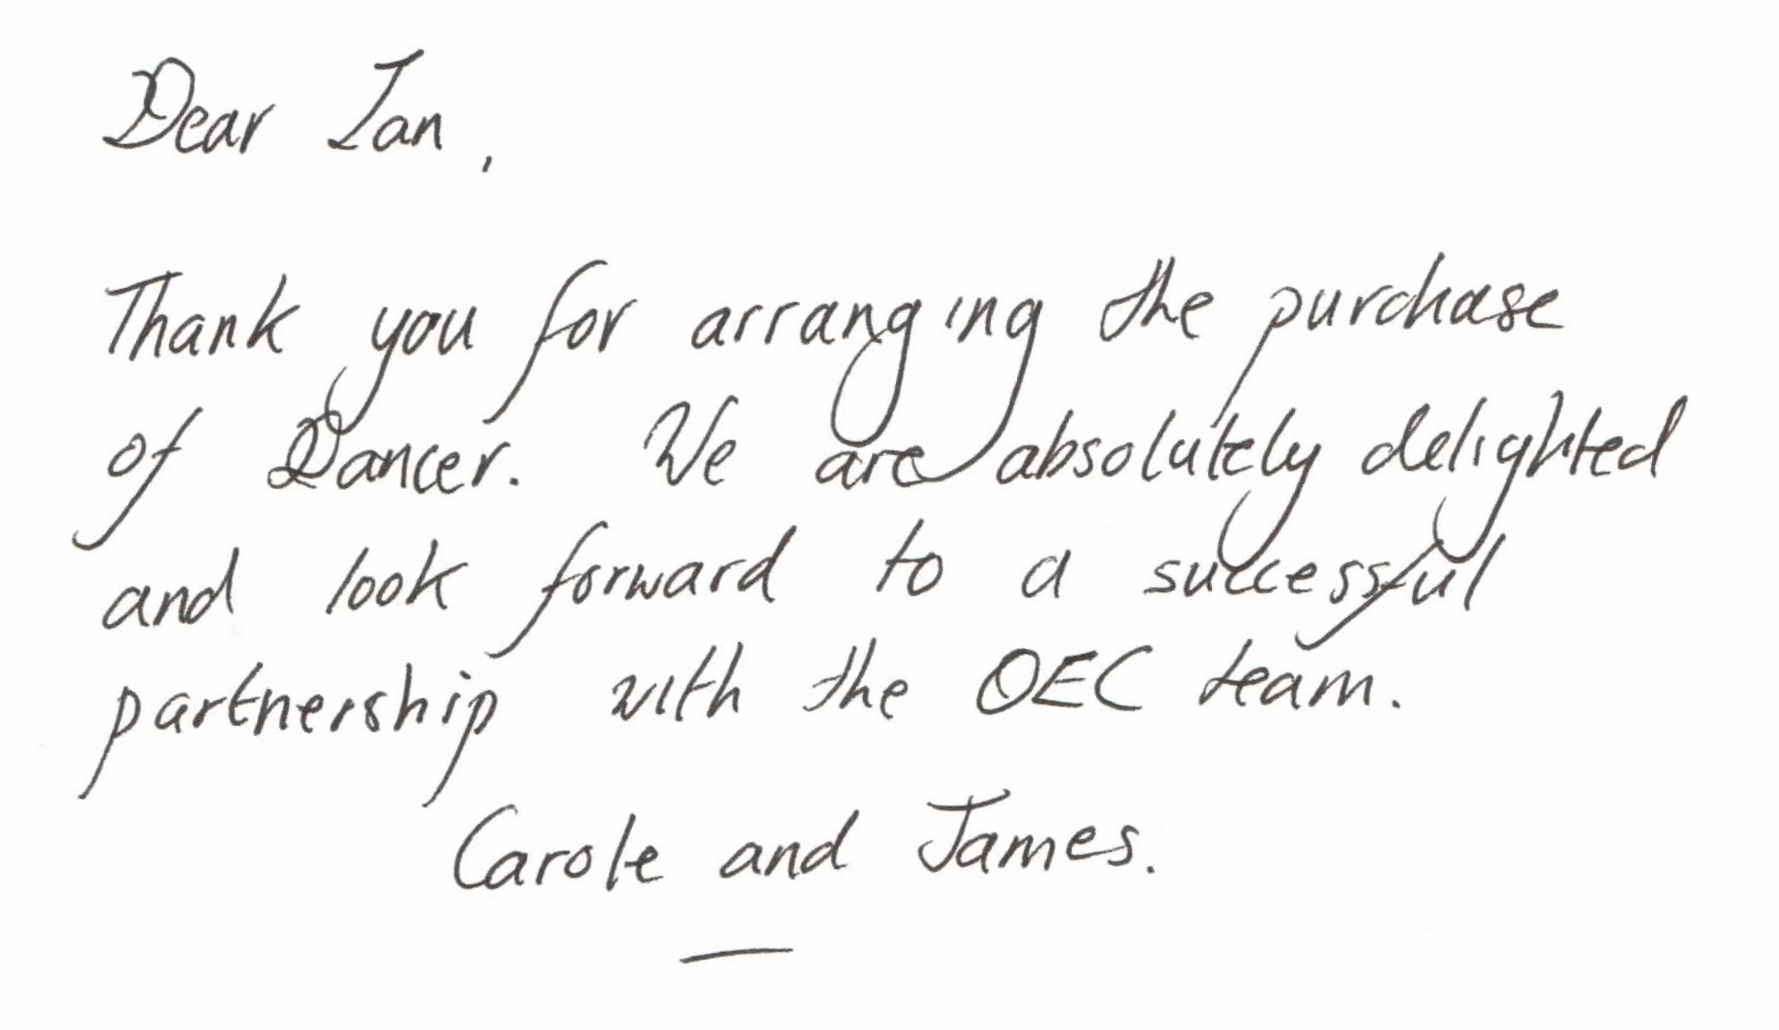 Dear Ian,
Thank you for arranging the purchase
of Dancer. We are absolutely delighted
and look forward to a successful
partnership with the OEC team.
Carole and James.